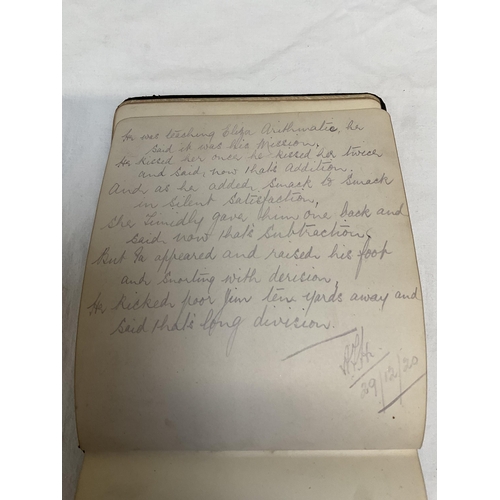 He was teaching Eliza Arithmatic, he
said it was his Mission,
He kissed her once he kissed her twice
and said, now that's addition,
And as he added smack to smack
in silent satisfaction,
She Timidly gave him one back and
said now that's Subtraction,
But Pa appeared and raised his foot
and snorting with derision,
He kicked poor Jim ten yards away and
said that's long division.
29/12/20